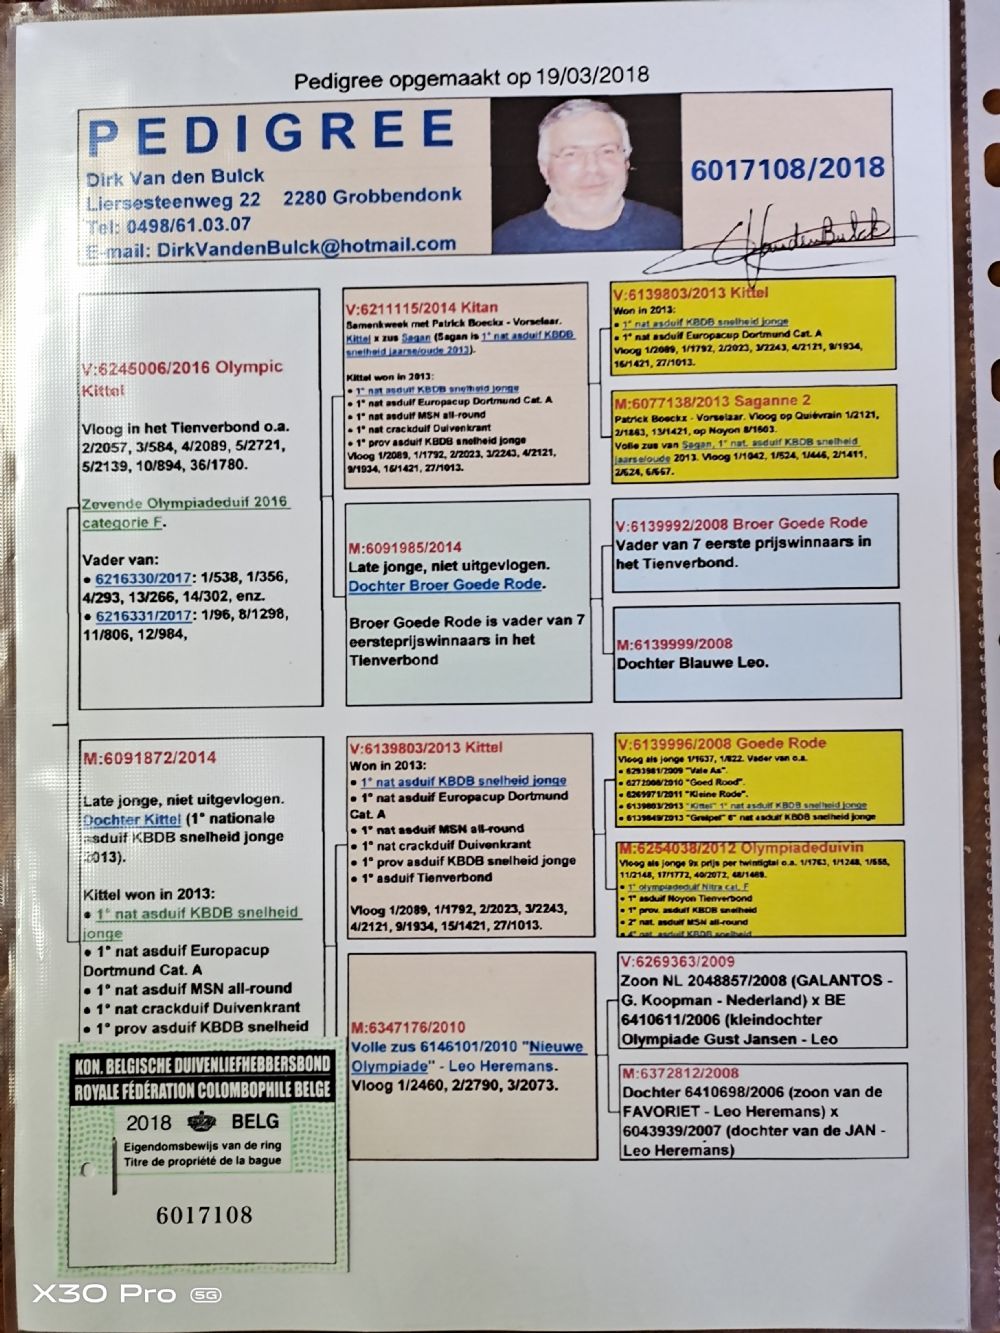 Pedigree opgemaakt op 19/03/2018
PEDIGREE
Dirk Van den Bulck
Liersesteenweg 22 2280 Grobbendonk
Tel: 0498/61.03.07
E-mail: DirkVandenBulck@hotmail.com
6017108/2018
VandenBulck
V:6245006/2016 Olympic
Kittel
Vloog in het Tienverbond o.a.
2/2057, 3/584, 4/2089, 5/2721,
5/2139, 10/894, 36/1780.
Zevende Olympiadeduif 2016
categorie F.
Vader van:
• 6216330/2017: 1/538, 1/356,
4/293, 13/266, 14/302, enz.
• 6216331/2017: 1/96, 8/1298,
11/806, 12/984,
M:6091872/2014
Late jonge, niet uitgevlogen.
Dochter Kittel (1° nationale
asduif KBDB snelheid jonge
2013).
Kittel won in 2013:
• 1° nat asduif KBDB snelheid
jonge
• 1° nat asduif Europacup
Dortmund Cat. A
• 1° nat asduif MSN all-round
• 1° nat crackduif Duivenkrant
• 1° prov asduif KBDB snelheid
V:6211115/2014 Kitan
Samenkweek met Patrick Boeckx - Vorselaar.
Kittel x zus Sagan (Sagan is 1° nat asduif KBDB
snelheid jaarse/oude 2013).
Kittel won in 2013:
• 1° nat asduif KBDB snelheid jonge
• 1° nat asduif Europacup Dortmund Cat. A
• 1° nat asduif MSN all-round
• 1° nat crackduif Duivenkrant
• 1° prov asduif KBDB snelheid jonge
Vloog 1/2089, 1/1792, 2/2023, 3/2243, 4/2121,
9/1934, 16/1421, 27/1013.
M:6091985/2014
Late jonge, niet uitgevlogen.
Dochter Broer Goede Rode.
Broer Goede Rode is vader van 7
eersteprijswinnaars in het
Tienverbond
V:6139803/2013 Kittel
Won in 2013:
• 1° nat asduif KBDB snelheid jonge
• 1° nat asduif Europacup Dortmund
Cat. A
• 1° nat asduif MSN all-round
• 1° nat crackduif Duivenkrant
• 1° prov asduif KBDB snelheid jonge
• 1° asduif Tienverbond
Vloog 1/2089, 1/1792, 2/2023, 3/2243,
4/2121, 9/1934, 15/1421, 27/1013.
M:6347176/2010
Volle zus 6146101/2010 "Nieuwe
Olympiade" - Leo Heremans.
Vloog 1/2460, 2/2790, 3/2073.
V:6139803/2013 Kittel
Won in 2013:
• 1° nat asduif KBDB snelheid jonge
• 1° nat asduif Europacup Dortmund Cat. A
Vloog 1/2089, 1/1792, 2/2023, 3/2243, 4/2121, 9/1934,
16/1421, 27/1013.
M:6077138/2013 Saganne 2
Patrick Boeckx - Vorselaar. Vloog op Quiévrain 1/2121,
2/1863, 13/1421, op Noyon 8/1503.
Volle zus van Sagan, 1° nat. asduif KBDB snelheid
jaarse/oude 2013. Vloog 1/1042, 1/524, 1/446, 2/1411,
2/624, 6/667.
V:6139992/2008 Broer Goede Rode
Vader van 7 eerste prijswinnaars in
het Tienverbond.
M:6139999/2008
Dochter Blauwe Leo.
V:6139996/2008 Goede Rode
Vloog als jonge 1/1637, 1/822. Vader van o.a.
• 6293981/2009 "Vale As".
• 6272008/2010 "Goed Rood".
• 6269971/2011 "Kleine Rode".
• 6139803/2013 "Kittel" 1° nat asduif KBDB snelheid jonge
• 6139849/2013 "Greipel" 6° nat asduif KBDB snelheid jonge
M:6254038/2012 Olympiadeduivin
Vloog als jonge 9x prijs per twintigtal o.a. 1/1763, 1/1248, 1/558,
11/2148, 17/1772, 40/2072, 48/1489.
• 1° olympiadeduif Nitra cat. F
• 1° asduif Noyon Tienverbond
• 1° prov. asduif KBDB snelheid
• 2° nat. asduif MSN all-round
• 4° nat. asduif KBDB snelheid
V:6269363/2009
Zoon NL 2048857/2008 (GALANTOS -
G. Koopman - Nederland) x BE
6410611/2006 (kleindochter
Olympiade Gust Jansen - Leo
M:6372812/2008
Dochter 6410698/2006 (zoon van de
FAVORIET - Leo Heremans) x
6043939/2007 (dochter van de JAN -
Leo Heremans)
KON. BELGISCHE DUIVENLIEFHEBBERSBOND
ROYALE FÉDÉRATION COLOMBOPHILE BELGE
2018 BELG
Eigendomsbewijs van de ring
Titre de propriété de la bague
6017108
X30 Pro 5G